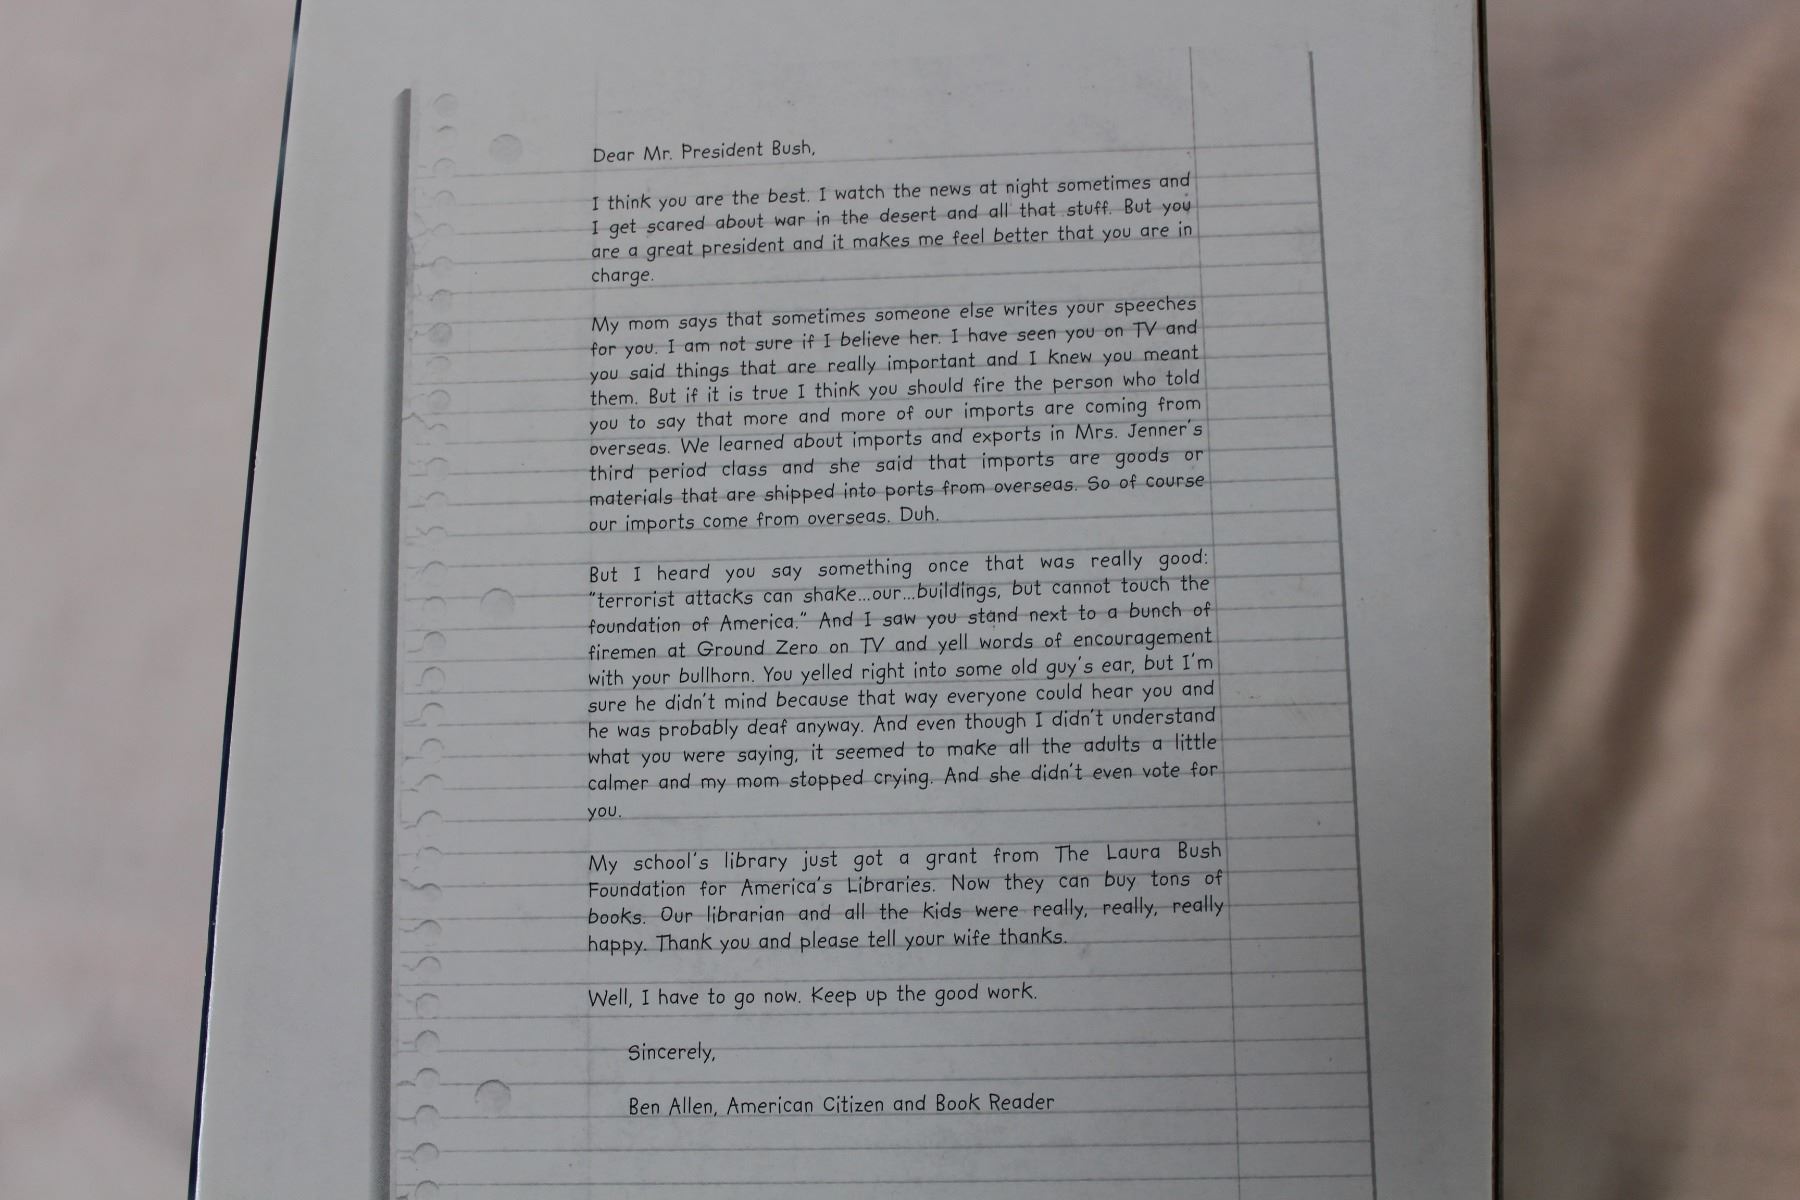 Dear Mr. President Bush,
I think you are the best. I watch the news at night sometimes and
I get scared about war in the desert and all that stuff. But you
are a great president and it makes me feel better that you are in
charge.
My mom says that sometimes someone else writes your speeches
for you. I am not sure if I believe her. I have seen you on TV and
you said things that are really important and I knew you meant
them. But if it is true I think you should fire the person who told
you to say that more and more of our imports are coming from
overseas. We learned about imports and exports in Mrs. Jenner's
third period class and she said that imports are goods or
materials that are shipped into ports from overseas. So of course
our imports come from overseas. Duh.
But I heard you say something once that was really good:
"terrorist attacks can shake...our...buildings, but cannot touch the
foundation of America." And I saw you stand next to a bunch of
firemen at Ground Zero on TV and yell words of encouragement
with your bullhorn. You yelled right into some old guy's ear, but I'm
sure he didn't mind because that way everyone could hear you and
he was probably deaf anyway. And even though I didn't understand
what you were saying, it seemed to make all the adults a little
calmer and my mom stopped crying. And she didn't even vote for
you.
My school's library just got a grant from The Laura Bush
Foundation for America's Libraries. Now they can buy tons of
books. Our librarian and all the kids were really, really, really
happy. Thank you and please tell your wife thanks.
Well, I have to go now. Keep up the good work.
Sincerely,
Ben Allen, American Citizen and Book Reader